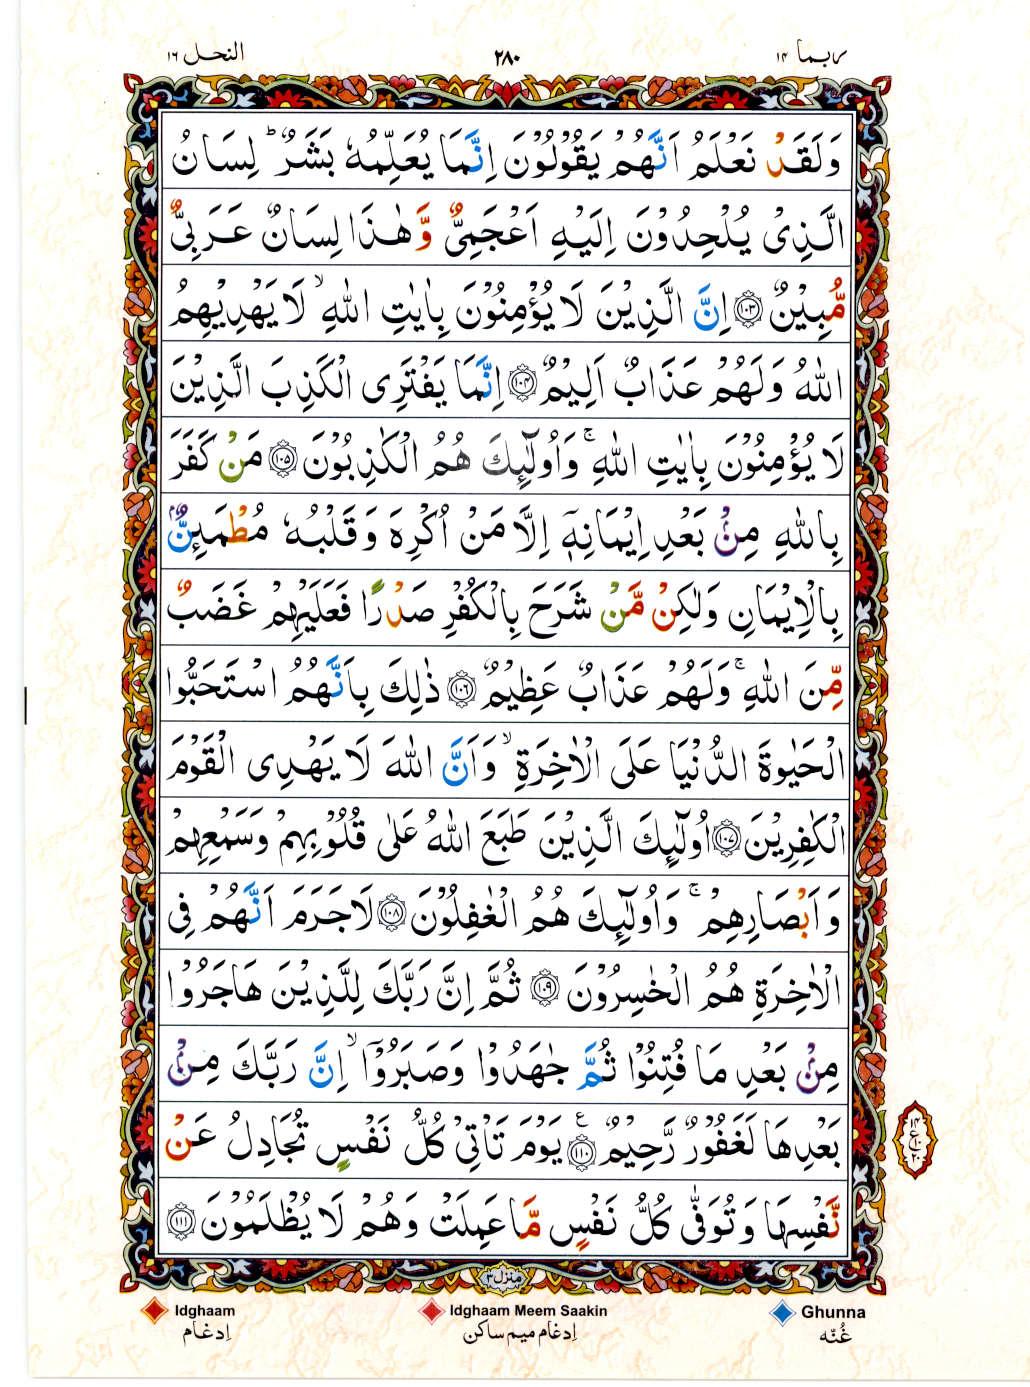 ربما ۱۴
۲۸۰
النحل ۱۶
وَلَقَدْ نَعْلَمُ اَنَّهُمْ يَقُوْلُوْنَ اِنَّمَا يُعَلِّمُهٗ بَشَرٌ ؕ لِسَانُ
الَّذِىْ يُلْحِدُوْنَ اِلَيْهِ اَعْجَمِىٌّ وَّهٰذَا لِسَانٌ عَرَبِىٌّ
مُّبِيْنٌ ﴿۱۰۳﴾ اِنَّ الَّذِيْنَ لَا يُؤْمِنُوْنَ بِاٰيٰتِ اللّٰهِ ۙ لَا يَهْدِيْهِمُ
اللّٰهُ وَلَهُمْ عَذَابٌ اَلِيْمٌ ﴿۱۰۴﴾ اِنَّمَا يَفْتَرِى الْكَذِبَ الَّذِيْنَ
لَا يُؤْمِنُوْنَ بِاٰيٰتِ اللّٰهِ ۚ وَاُولٰٓئِكَ هُمُ الْكٰذِبُوْنَ ﴿۱۰۵﴾ مَنْ كَفَرَ
بِاللّٰهِ مِنْۢ بَعْدِ اِيْمَانِهٖۤ اِلَّا مَنْ اُكْرِهَ وَقَلْبُهٗ مُطْمَئِنٌّۢ
بِالْاِيْمَانِ وَلٰكِنْ مَّنْ شَرَحَ بِالْكُفْرِ صَدْرًا فَعَلَيْهِمْ غَضَبٌ
مِّنَ اللّٰهِ ۚ وَلَهُمْ عَذَابٌ عَظِيْمٌ ﴿۱۰۶﴾ ذٰلِكَ بِاَنَّهُمُ اسْتَحَبُّوا
الْحَيٰوةَ الدُّنْيَا عَلَى الْاٰخِرَةِ ۙ وَاَنَّ اللّٰهَ لَا يَهْدِى الْقَوْمَ
الْكٰفِرِيْنَ ﴿۱۰۷﴾ اُولٰٓئِكَ الَّذِيْنَ طَبَعَ اللّٰهُ عَلٰى قُلُوْبِهِمْ وَسَمْعِهِمْ
وَاَبْصَارِهِمْ ۚ وَاُولٰٓئِكَ هُمُ الْغٰفِلُوْنَ ﴿۱۰۸﴾ لَا جَرَمَ اَنَّهُمْ فِى
الْاٰخِرَةِ هُمُ الْخٰسِرُوْنَ ﴿۱۰۹﴾ ثُمَّ اِنَّ رَبَّكَ لِلَّذِيْنَ هَاجَرُوْا
مِنْۢ بَعْدِ مَا فُتِنُوْا ثُمَّ جٰهَدُوْا وَصَبَرُوْۤا ۙ اِنَّ رَبَّكَ مِنْۢ
بَعْدِهَا لَغَفُوْرٌ رَّحِيْمٌ ﴿۱۱۰﴾ ع يَوْمَ تَاْتِىْ كُلُّ نَفْسٍ تُجَادِلُ عَنْ
نَّفْسِهَا وَتُوَفّٰى كُلُّ نَفْسٍ مَّا عَمِلَتْ وَهُمْ لَا يُظْلَمُوْنَ ﴿۱۱۱﴾
منزل ۳
Ghunna
غُنّه
Idghaam Meem Saakin
اِدغام میم ساکن
Idghaam
اِدغام